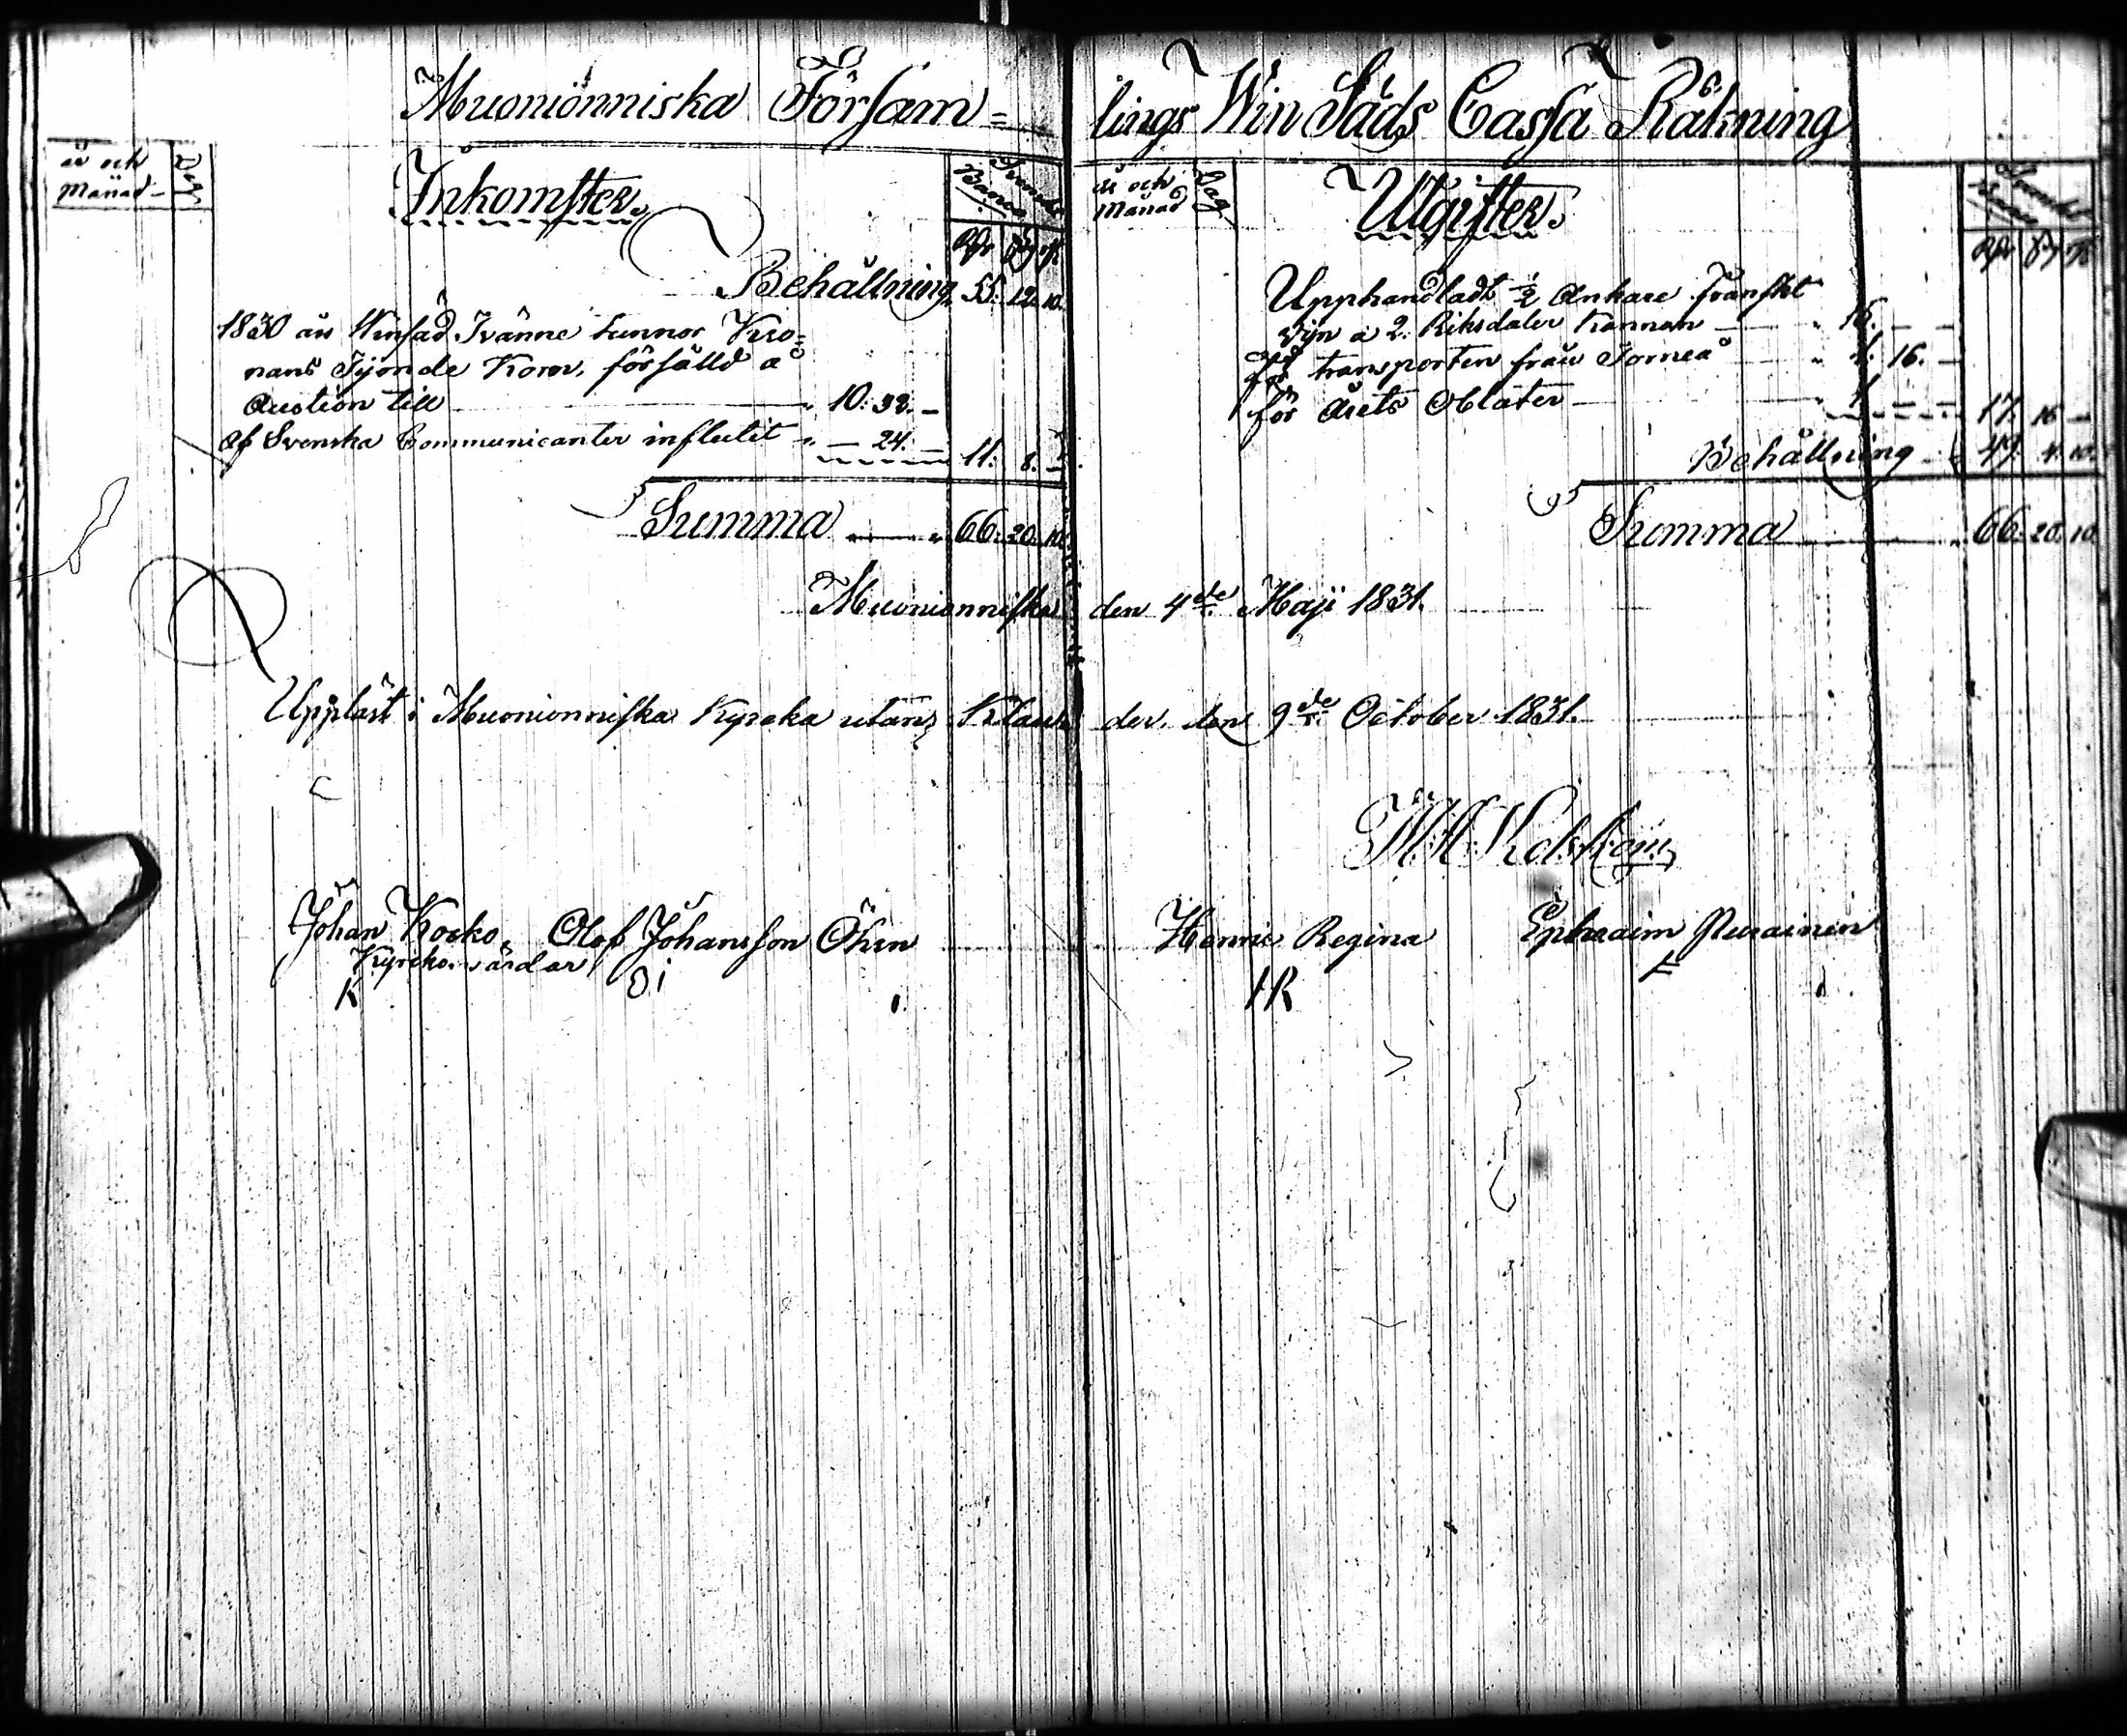 Muonionniska Församlings Win Säds Cassa Räkning
år och Månad
Dag
Inkomster.
Svenska Banco
Rdr ß rst
Behållning 55. 12. 10.
1830 års Winsäd Tvänne tunnor Kro=
nans Tijonde Korn, försålld å
Auction till 10: 32. —
Af Svenska Communicanter influtit — 24. — 11: 8. —
Summa 66. 20. 10.
år och Månad
Dag
Utgifter.
Svenska Banco
Rdr ß rst
Upphandladt ½ Ankare Franskt
vijn a 2. Riksdaler Kannan 15. — —
för transporten från Torneå 1. 16. —
för årets Oblater 1. — — 17. 16 —
Behållning 49. 4. 10.
Summa 66. 20. 10.
Muonionniska den 4de Maji 1831.
Uppläst i Muonionniska Kyrcka utan Klander, den 9de October 1831.
Johan Kocko Olof Johansson Öhrn Henric Regina Ephraim
Kyrckovärdar
K OI HR E